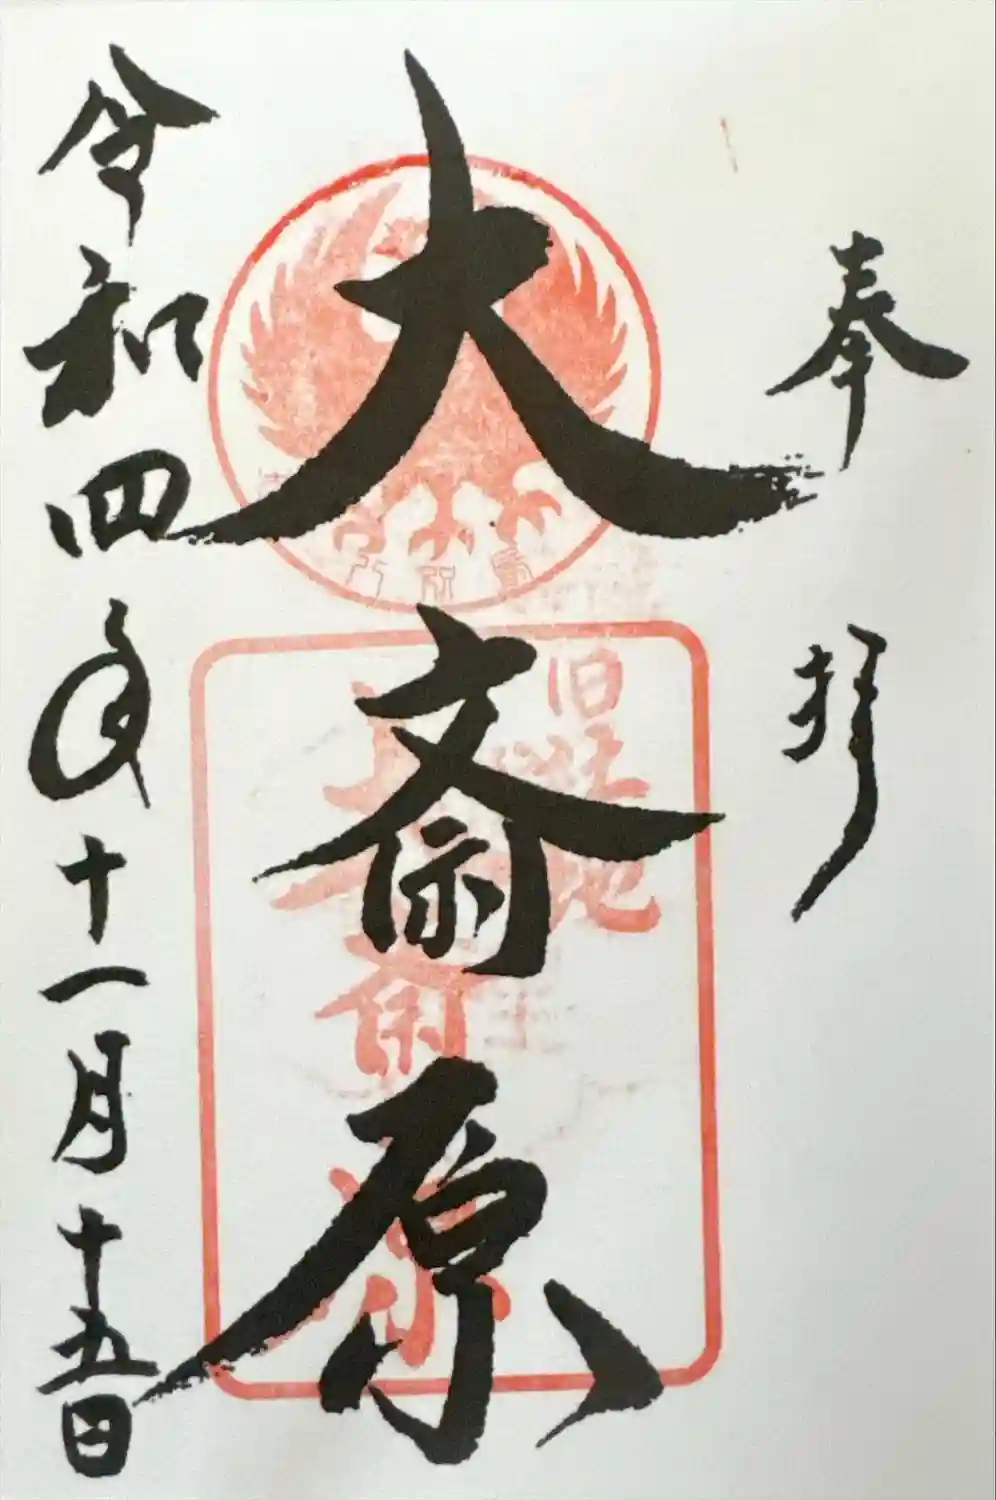 奉拝
大斎原
旧社地
大斎原
令和四年十一月十五日